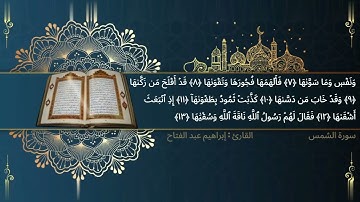 وَنَفْسٍ وَمَا سَوَّىٰهَا ﴿٧﴾ فَأَلْهَمَهَا فُجُورَهَا وَتَقْوَىٰهَا ﴿٨﴾ قَدْ أَفْلَحَ مَن زَكَّىٰهَا
﴿٩﴾ وَقَدْ خَابَ مَن دَسَّىٰهَا ﴿١٠﴾ كَذَّبَتْ ثَمُودُ بِطَغْوَىٰهَآ ﴿١١﴾ إِذِ ٱنۢبَعَثَ
أَشْقَىٰهَا ﴿١٢﴾ فَقَالَ لَهُمْ رَسُولُ ٱللَّهِ نَاقَةَ ٱللَّهِ وَسُقْيَٰهَا ﴿١٣﴾
سورة الشمس القارئ : إبراهيم عبد الفتاح